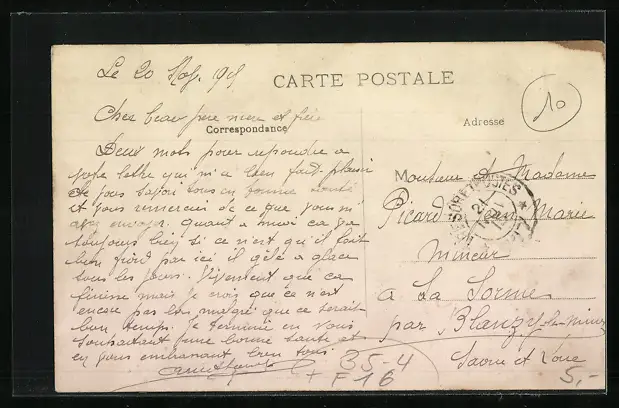 Le 20 Nov. 191
CARTE POSTALE
10
Cher beau père mere et frère
Correspondance
Adresse
Deux mots pour repondre a
votre lettre qui m'a bien fait plaisir
de vous savoir tous en bonne santé
et vous remercie de ce que vous m'
avez envoyer. Quant a moi ca va
toujours bien si ce n'est qu'il fait
bien froid par ici il gèle a glace
tous les jours. Vivement que ca
finisse mais je crois que ce n'est
encore pas malgré que ce serait
bon temps. Je termine en vous
souhaitant une bonne santé et
en vous embrassant bien tous.
Monsieur et Madame
Picard Jean Marie
mineur
a La Sorme
par Blanzy les mines
Saone et Loire
TRESOR ET POSTES
21
35-4
+ F16
5,-